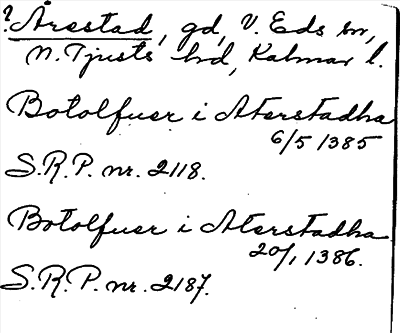 ? Årsstad, gd, V. Eds sn,
N. Tjusts hd, Kalmar l.
Botolfuer i Aterstadha
6/5 1385
S.R.P. nr. 2118.
Botolfuer i Aterstadha
20/1 1386.
S.R.P. nr. 2187.